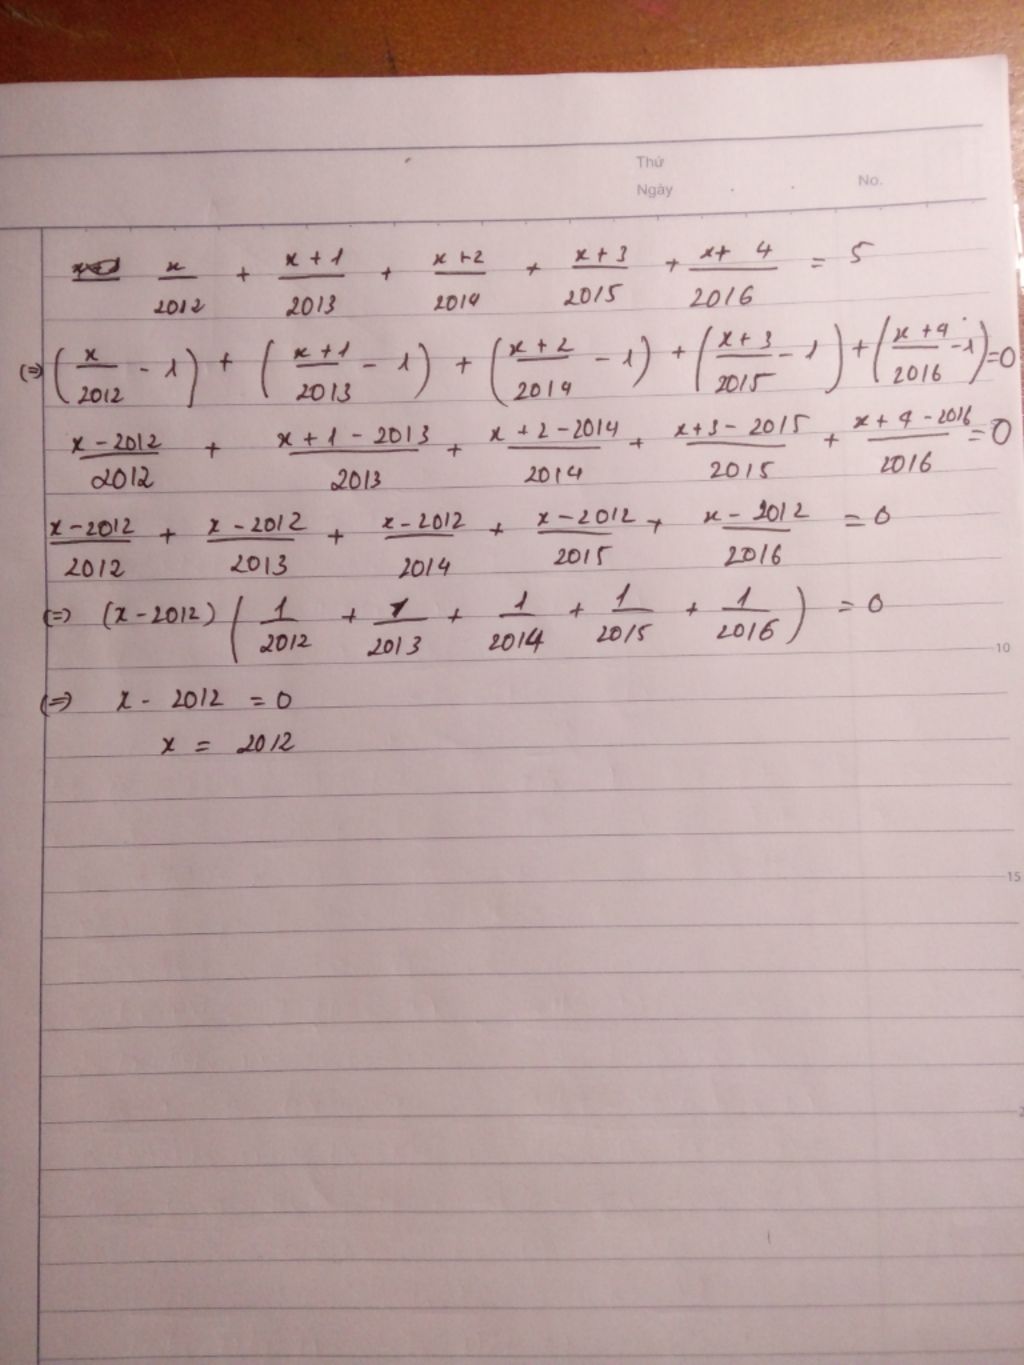 Thứ
Ngày . . No.
x/2012 + x+1/2013 + x+2/2014 + x+3/2015 + x+4/2016 = 5
(=) (x/2012 - 1) + (x+1/2013 - 1) + (x+2/2014 - 1) + (x+3/2015 - 1) + (x+4/2016 - 1) = 0
x-2012/2012 + x+1-2013/2013 + x+2-2014/2014 + x+3-2015/2015 + x+4-2016/2016 = 0
x-2012/2012 + x-2012/2013 + x-2012/2014 + x-2012/2015 + x-2012/2016 = 0
(=) (x-2012) (1/2012 + 1/2013 + 1/2014 + 1/2015 + 1/2016) = 0
10
(=) x - 2012 = 0
x = 2012
15